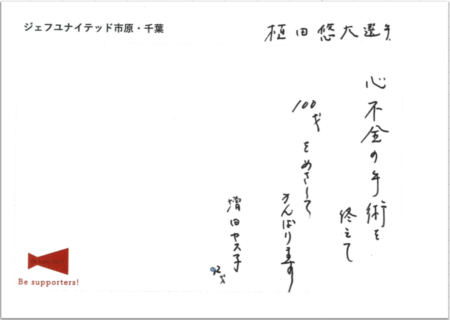 ジェフユナイテッド市原・千葉
植田悠太選手
心不全の手術を
終えて
100才をめざして
がんばります
増田ヤス子
92才
Be supporters!